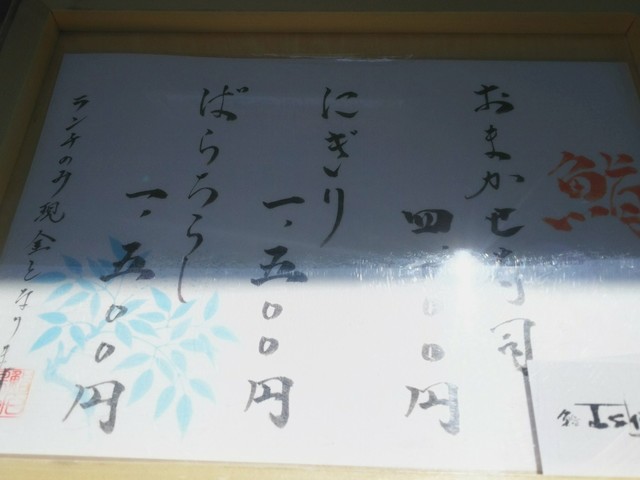 鮨
おまかせ寿司
四、〇〇〇円
にぎり
一、五〇〇円
ばらちらし
一、五〇〇円
ランチのみ現金となります